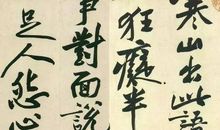 寒山出此語
狂癡半
事對面說
足人怨心